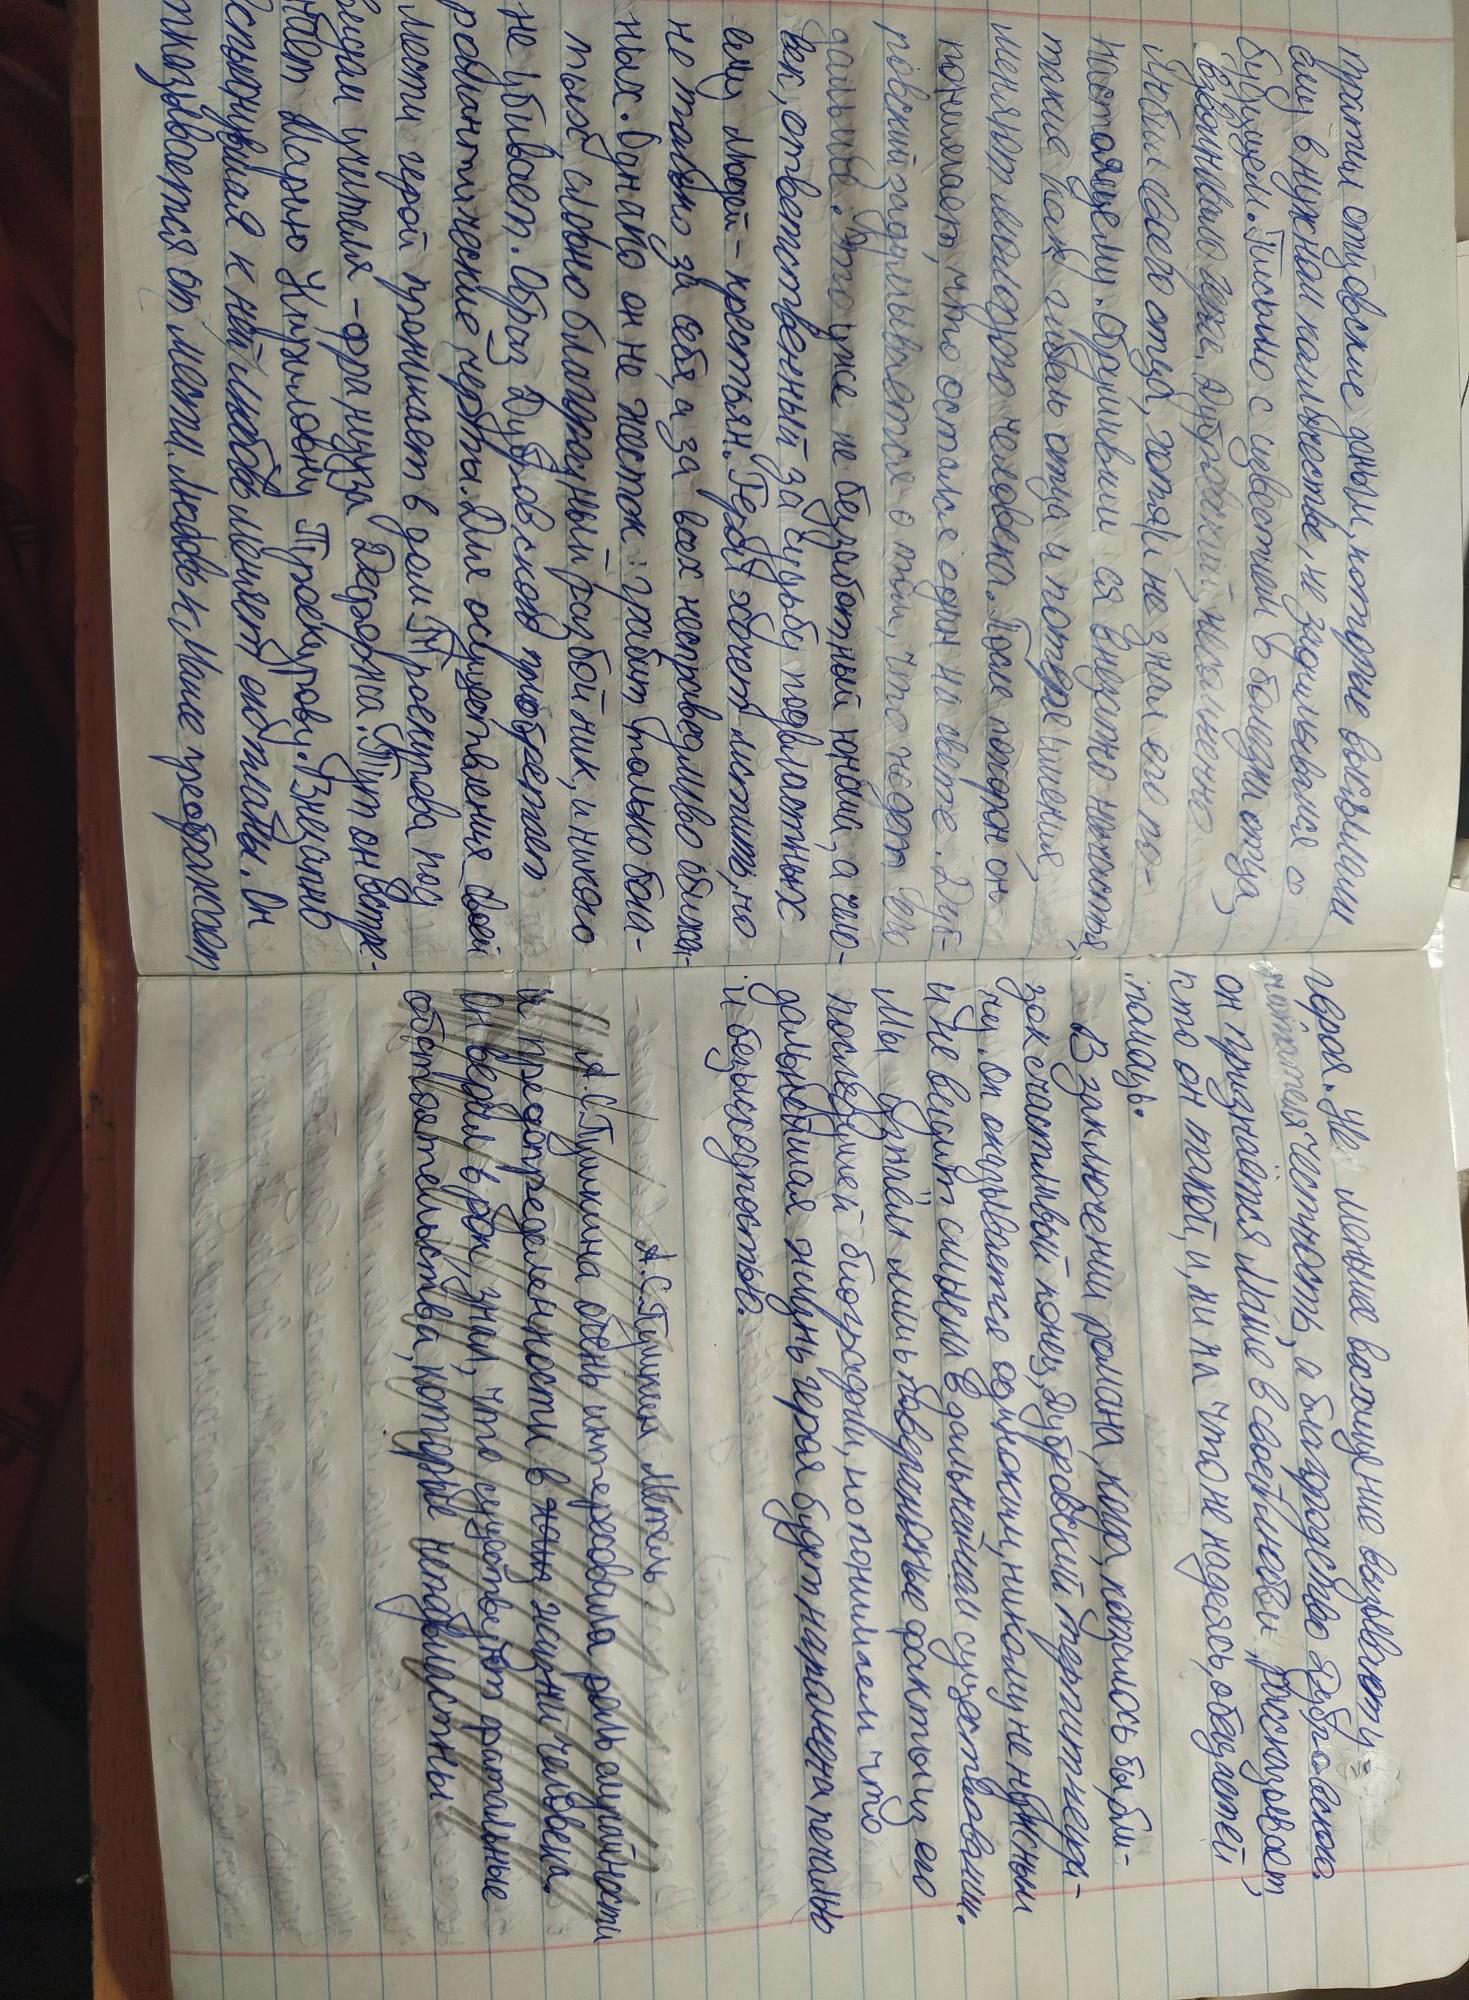 тратил отцовские деньги, которые высылали
ему в нужном количестве, не задумывался о
будущем. Письмо с известием о болезни отца
взволновало героя. Дубровский, несомненно
любил своего отца, хотя и не знал его по-
настоящему. Обрушившаяся внезапно нищета,
такие как гибель отца и потеря имения,
меняют молодого человека. После похорон он
понимает, что остался один на свете. Дуб-
ровский задумывается о том, что ждет его
дальше. Это уже не беззаботный юноша, а чело-
век, ответственный за судьбу подвластных
ему людей - крестьян. Герой хочет мстить, но
не только за себя, а за всех несправедливо обижен-
ных. Однако он не жесток: грабит только бога-
тых словно благородный разбойник, и никого
не убивает. Образ Дубровского приобретает
романтические черты. Для осуществления своей
мести герой проникает в дом Троекурова под
видом учителя - француза Дефоржа. Тут он встре-
чает Марию Кириловну Троекурову. Внезапно
вспыхнувшая к ней любовь меняет его планы. Он
отказывается от мести. Любовь к Маше преображает
героя. Не меньшее восхищение вызывают у
читателя честность, и благородство Дубровского.
он признаётся Маше в своей любви, рассказывает,
кто он такой, и, ни на что не надеясь, обещает ей
помощь.
В заключении романа, когда, казалось бы, бли-
зок счастливый конец, Дубровский терпит неуда-
чу. он оказывается одиноким, никому не нужным
и не видит смысла в дальнейшем существовании.
Мы узнаём лишь отверженные факты из его
последующей биографии, но понимаем что
дальнейшая жизнь героя будет наполнена печалью
и безысходностью.
А.С.Пушкин Метель
А.С.Пушкина очень интересовала роль случайности
и предопределенности в жизни человека.
Он верил в рок, знал, что существуют фатальные
обстоятельства, которые неподвластны